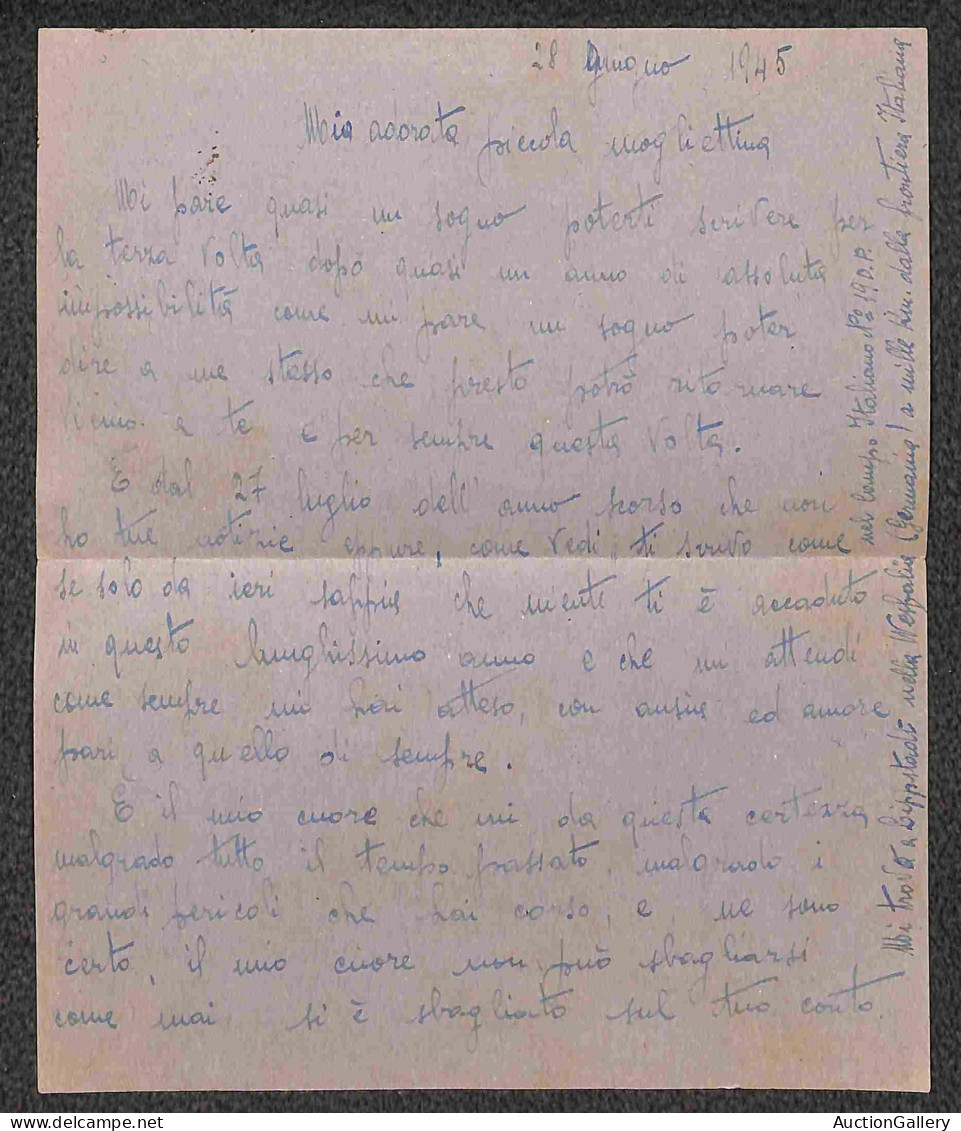 28 Giugno 1945
Mia adorata piccola mogliettina
Mi pare quasi un sogno poterti scrivere per
la terza volta dopo quasi un anno di assoluta
impossibilità come mi pare un sogno poter
dire a me stesso che presto potrò ritornare
vicino a te e per sempre questa volta.
È dal 27 luglio dell'anno scorso che non
ho tue notizie eppure, come vedi, ti scrivo come
se solo da ieri sappia che niente ti è accaduto
in questo lunghissimo anno e che mi attendi
come sempre mi hai atteso, con ansia ed amore
pari a quello di sempre.
È il mio cuore che mi da questa certezza
malgrado tutto il tempo passato, malgrado i
grandi pericoli che hai corso, e, ne sono
certo, il mio cuore non può sbagliarsi
come mai si è sbagliato sul tuo conto.
Mi trovo a Lippstadt nella Wesfalia (Germania) a mille km. dalla frontiera Italiana
nel campo Italiano Nº 19 D.P.
AuctionGallery